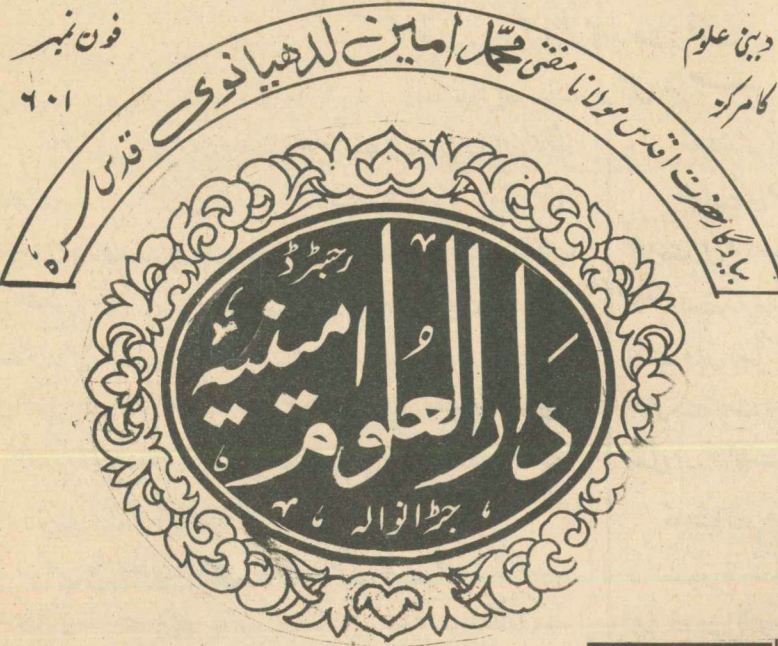 دینی علوم
کا مرکز
فون نمبر
۶۰۱
بیادگار حضرت اقدس مولانا مفتی محمد امین لدھیانوی قدس سرہ
دَارالعُلوم امینیہ رجسٹرڈ
جڑانوالہ